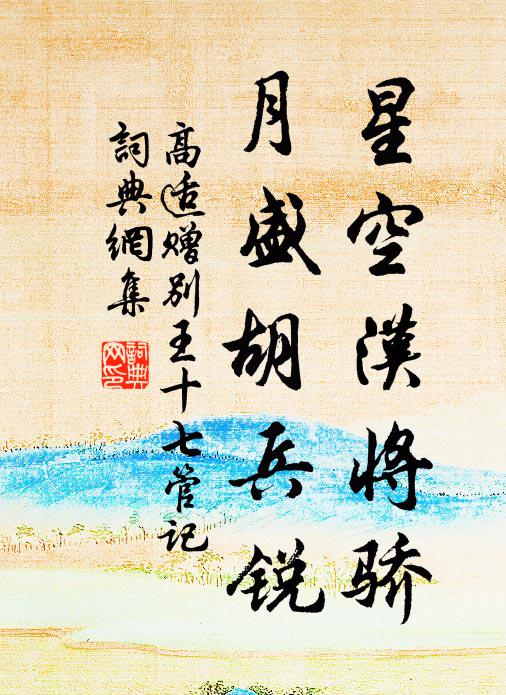 星空漢將骄
月盛胡兵锐
高适赠别王十七管记
詞典網集
詞典網印